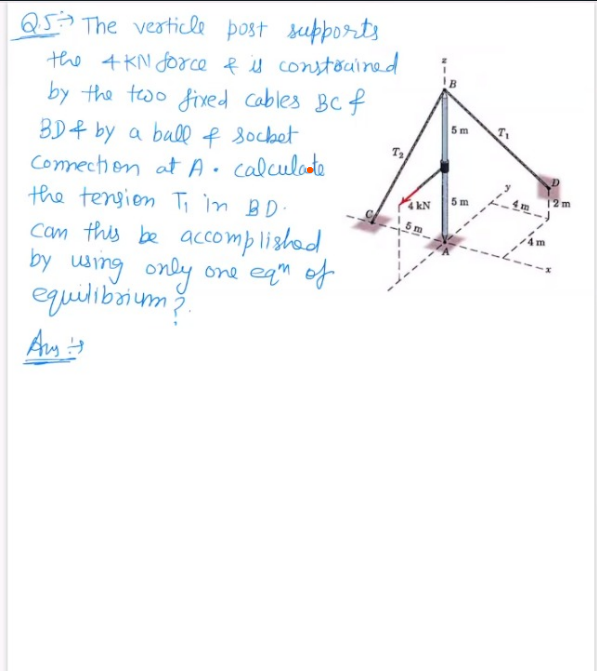 Q.5:→ The verticle post supports
the 4 KN force & is constrained
by the two fixed cables BC &
BD & by a ball & socket
connection at A. calculate
the tension T₁ in BD.
can this be accomplished
by using only one eqⁿ of
equilibrium?
Ans :→
z
B
5 m
T₁
T₂
D
y
4 m
2 m
4 kN
5 m
C
5 m
4 m
A
x